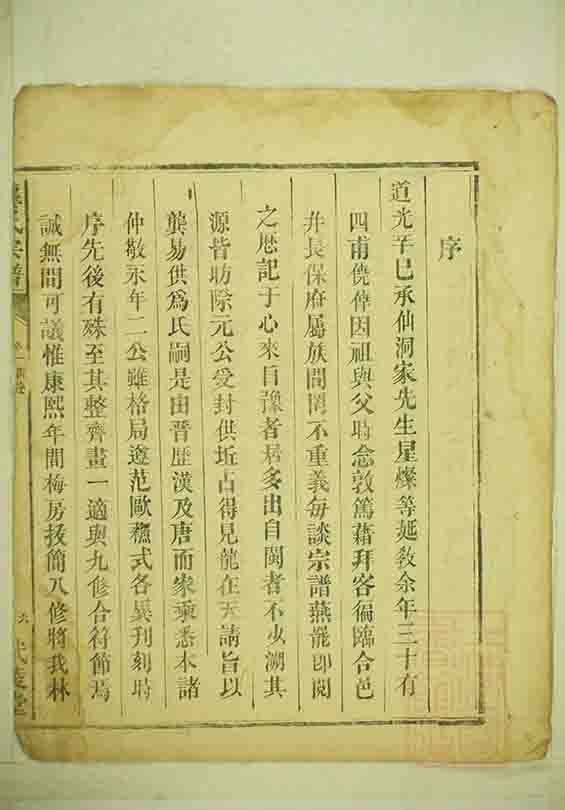 序
道光辛巳承仙洞家先生星燦等延教余年三十有
四甫僥倖因祖與父時念敦篤藉拜客徧臨合邑
并長保府屬族間罔不重義每談宗譜燕罷即閱
之歷記于心來自豫者居多出自閩者不少溯其
源皆昉除元公受封供坵占得見龍在天請旨以
龔易供爲氏嗣是由晋歷漢及唐而家乘悉本諸
仲敬永年二公雖格局遵范歐穪式各異刊刻時
序先後有殊至其整齊畫一適與九修合符節焉
誠無間可議惟康熙年間梅房拔簡八修將我林
氏宗譜
卷一
六